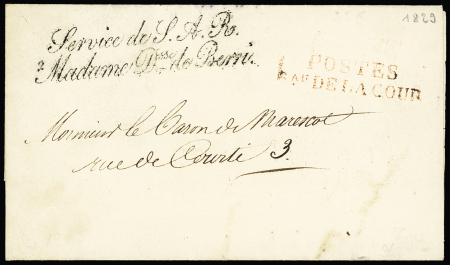 1829
Service de S. A. R.
Madame D.sse de Berri.
POSTES
B.AU DE LA COUR
Monsieur le Baron de Marescot
rue de 3.